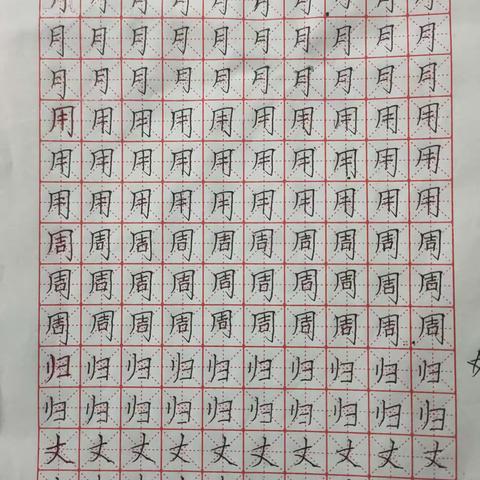 月月月月月月月月月月
月月月月月月月月月月
用用用用用用用用用用
用用用用用用用用用用
用用用用用用用用用用
周周周周周周周周周周
周周周周周周周周周周
周周周周周周周周周周
归归归归归归归归归归
归归归归归归归归归归
丈丈丈丈丈丈丈丈丈丈